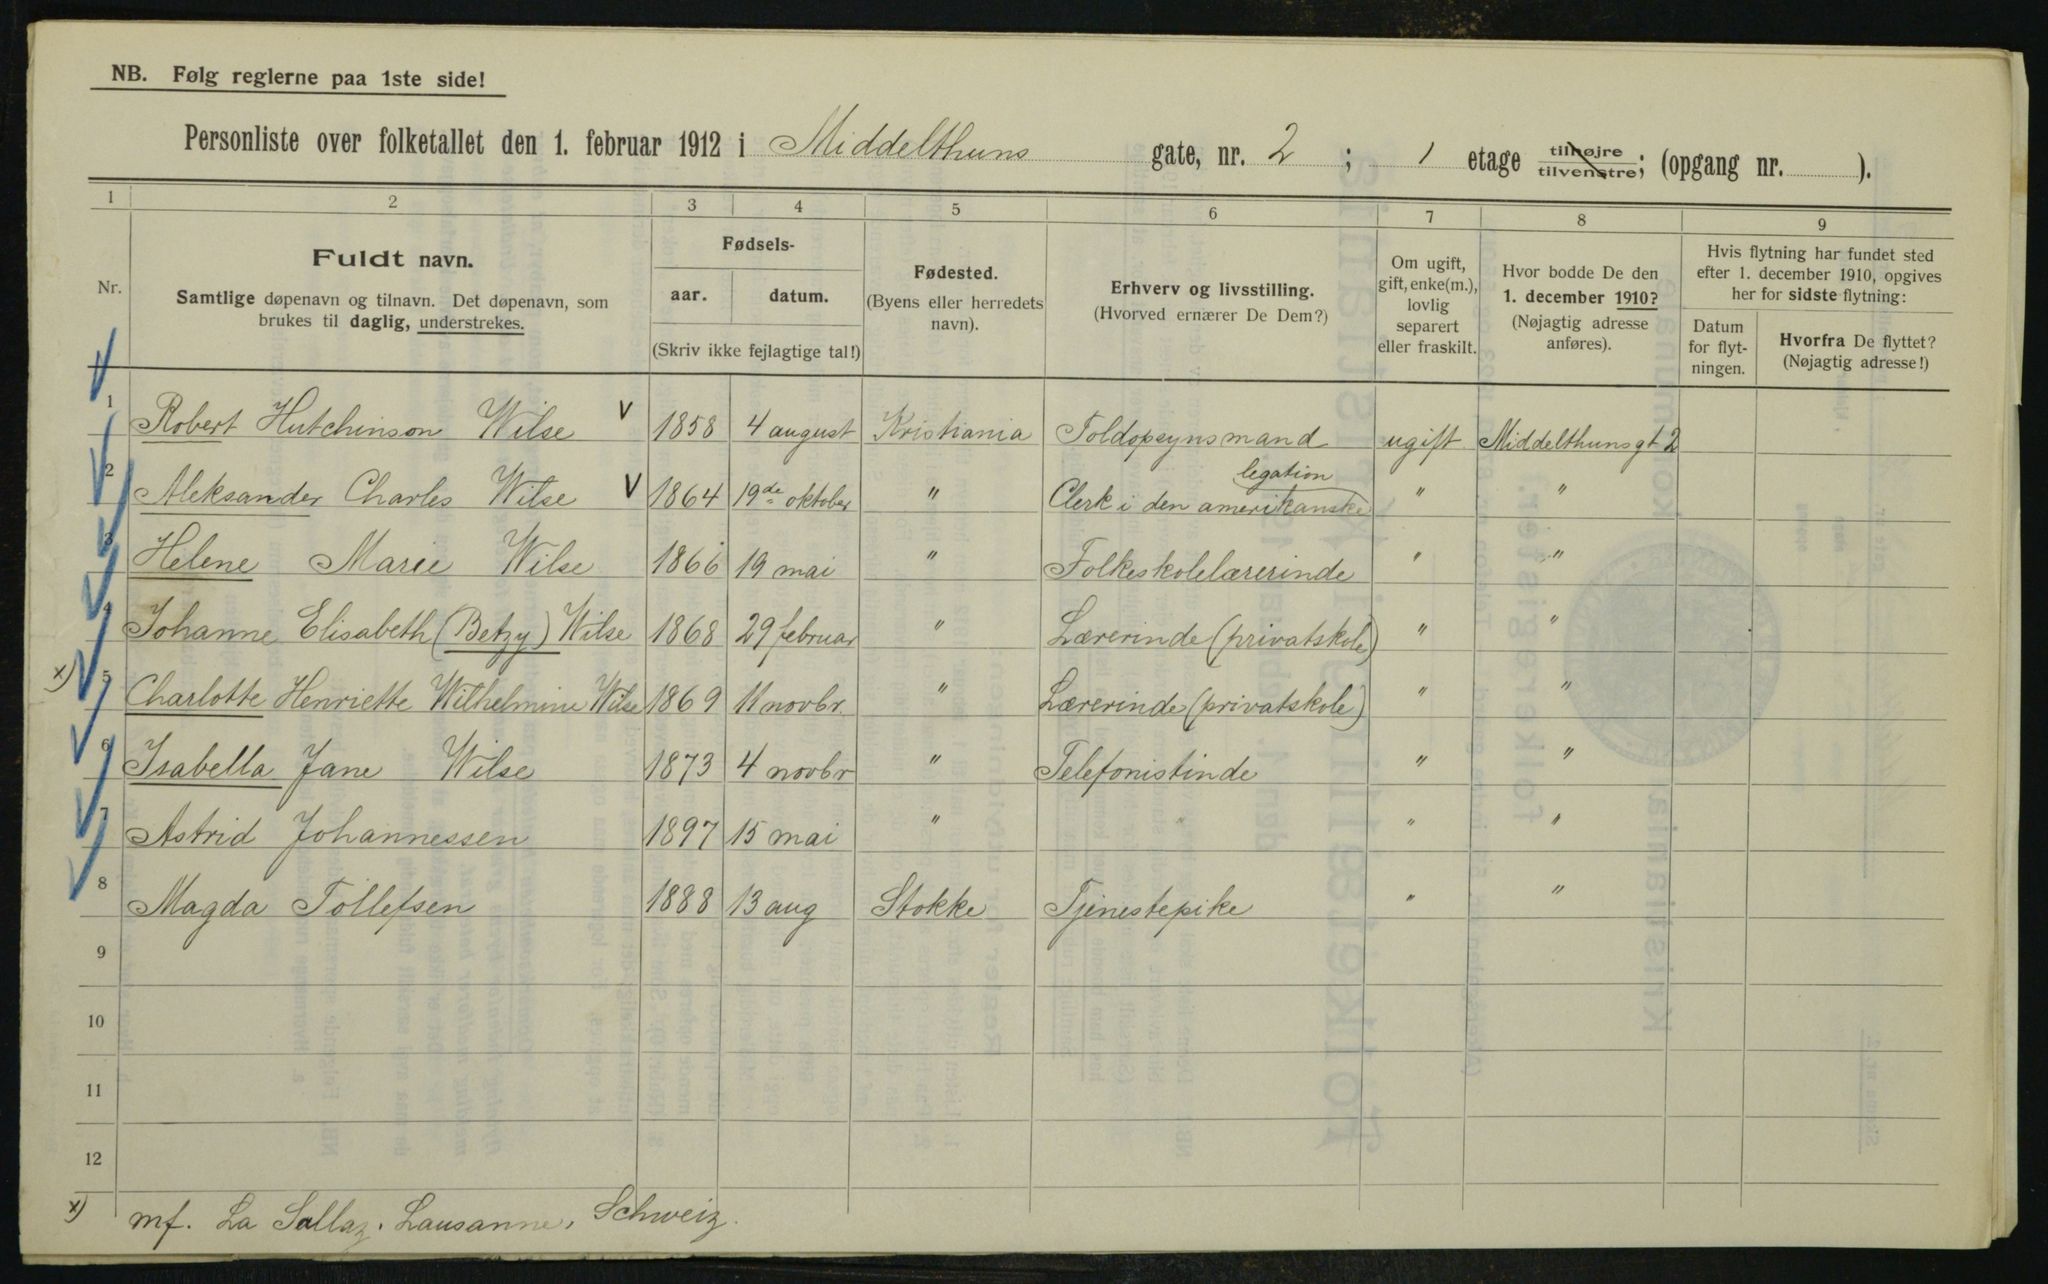 NB. Følg reglerne paa 1ste side!
Personliste over folketallet den 1. februar 1912 i Middelthuns gate, nr. 2 ; 1 etage tilhøjre tilvenstre; (opgang nr. ).
1 2 3 4 5 6 7 8 9
Nr.
Fuldt navn.
Samtlige døpenavn og tilnavn. Det døpenavn, som
brukes til daglig, understrekes.
Fødsels-
aar. datum.
(Skriv ikke fejlagtige tal!)
Fødested.
(Byens eller herredets
navn).
Erhverv og livsstilling.
(Hvorved ernærer De Dem?)
Om ugift,
gift, enke(m.),
lovlig
separert
eller fraskilt.
Hvor bodde De den
1. december 1910?
(Nøjagtig adresse
anføres).
Hvis flytning har fundet sted
efter 1. december 1910, opgives
her for sidste flytning:
Datum
for flyt-
ningen.
Hvorfra De flyttet?
(Nøjagtig adresse!)
1 Robert Hutchinson Wilse V 1858 4 august Kristiania Toldopsynsmand ugift Middelthunsgt 2
legation
2 Aleksander Charles Wilse V 1864 19de oktober " Clerk i den amerikanske " "
3 Helene Marie Wilse 1866 19 mai " Folkeskolelærerinde " "
4 Johanne Elisabeth (Betzy) Wilse 1868 29 februar " Lærerinde (privatskole) " "
x) 5 Charlotte Henriette Wilhelmine Wilse 1869 11 novbr. " Lærerinde (privatskole) " "
6 Isabella Jane Wilse 1873 4 novbr " Telefonistinde " "
7 Astrid Johannessen 1897 15 mai " " " "
8 Magda Tollefsen 1888 13 aug Stokke Tjenestepike " "
9
10
11
12
x) mf. La Sallaz. Lausanne. Schweiz.